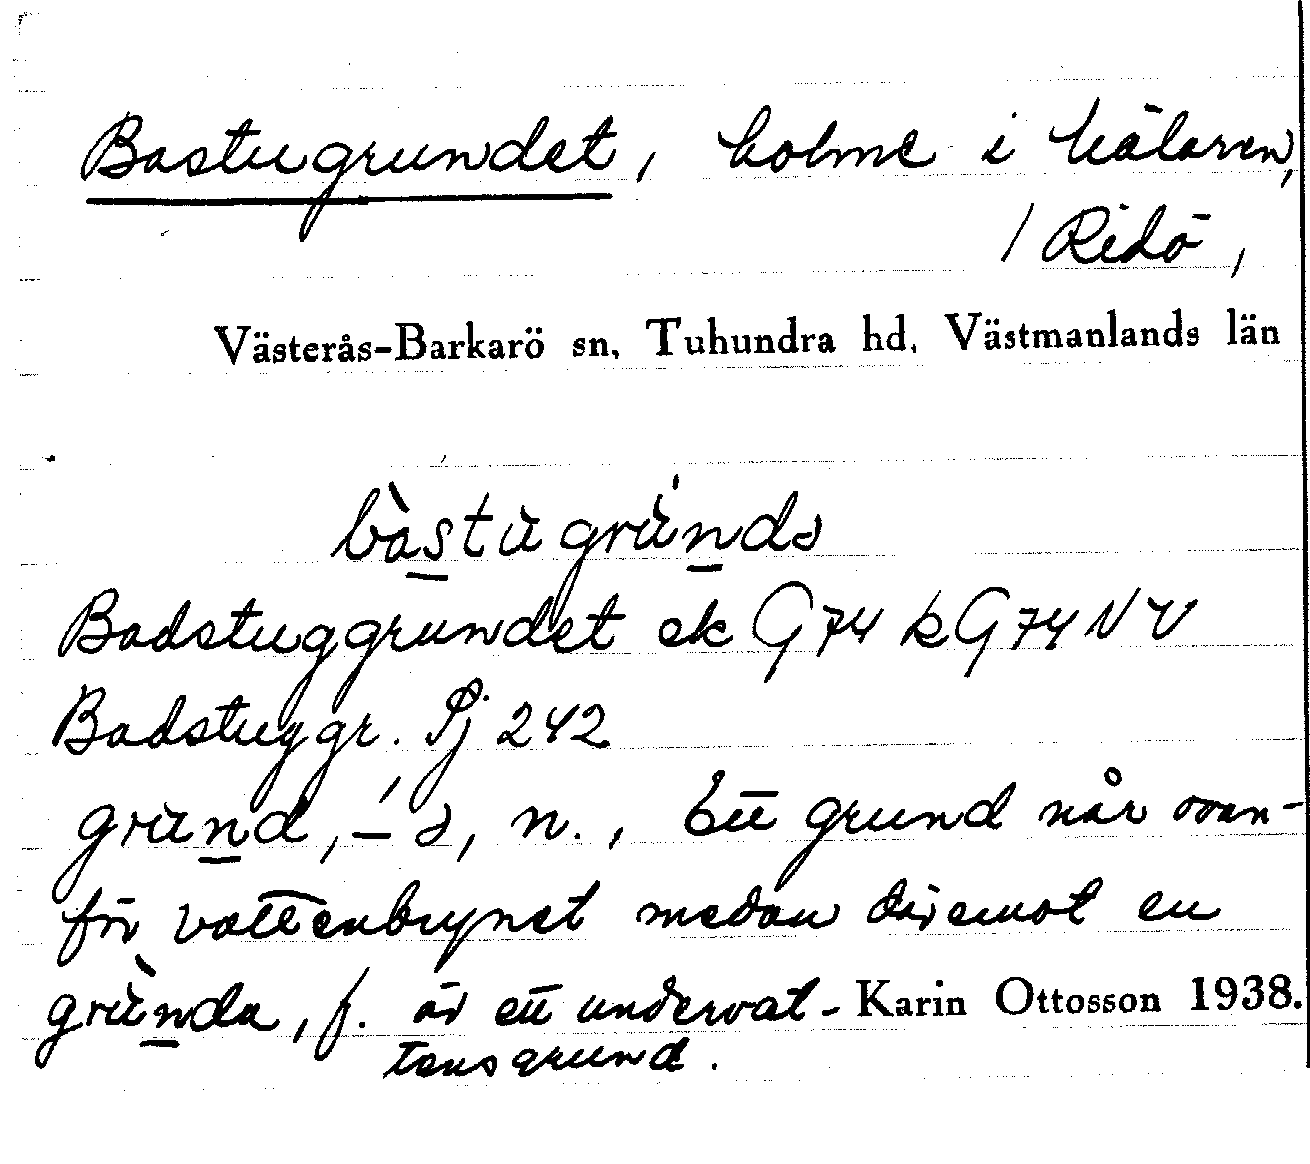 Bastugrundet, holme i Mälaren,
/ Ridö,
Västerås-Barkarö sn, Tuhundra hd, Västmanlands län
bàstu grùndə
Badstuggrundet ek G74 kG74NV
Badstuggr. Sj 242
grund, -ə, n., Ett grund når ovan-
för vattenbrynet medan däremot en
grùnda, f. är ett undervat-
tensgrund.
Karin Ottosson 1938.